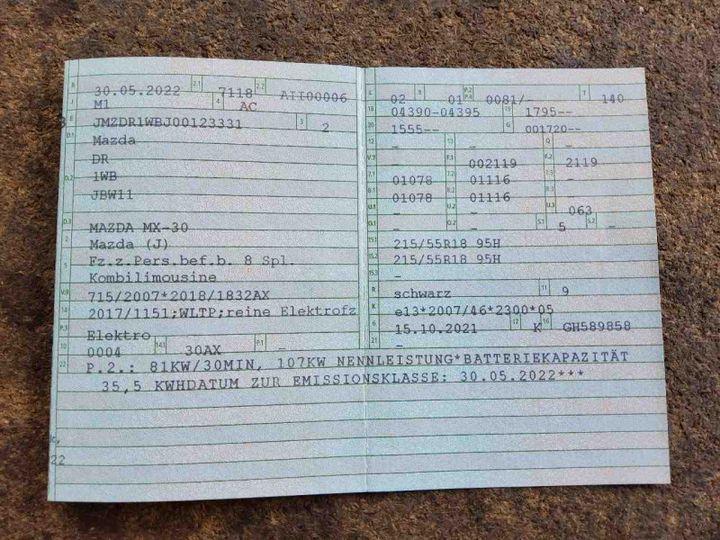 B 30.05.2022 2.1 7118 2.2 AII00006
J M1 4 AC
E JMZDR1WBJ00123331 3 2
D.1 Mazda
DR
D.2 1WB
JBW11
D.3 MAZDA MX-30
2 Mazda (J)
5 Fz.z.Pers.bef.b. 8 Spl.
Kombilimousine
V.9 715/2007*2018/1832AX
14 2017/1151;WLTP;reine Elektrofz
P.3 Elektro
10 0004 14.1 30AX P.1 -
22 P.2.: 81KW/30MIN, 107KW NENNLEISTUNG*BATTERIEKAPAZITÄT
35,5 KWHDATUM ZUR EMISSIONSKLASSE: 30.05.2022***
22
L 02 9 01 P.2 P.4 0081/- T 140
18 04390-04395 19 1795--
20 1555-- G 001720--
12 - 13 - Q -
V.7 - F.1 002119 F.2 2119
7.1 01078 7.2 01116 7.3 -
8.1 01078 8.2 01116 8.3 -
U.1 - U.2 - U.3 063
O.1 - O.2 - S.1 5 S.2 -
15.1 215/55R18 95H
15.2 215/55R18 95H
15.3 -
R schwarz 11 9
K e13*2007/46*2300*05
6 15.10.2021 17 K 16 GH589858
21 -